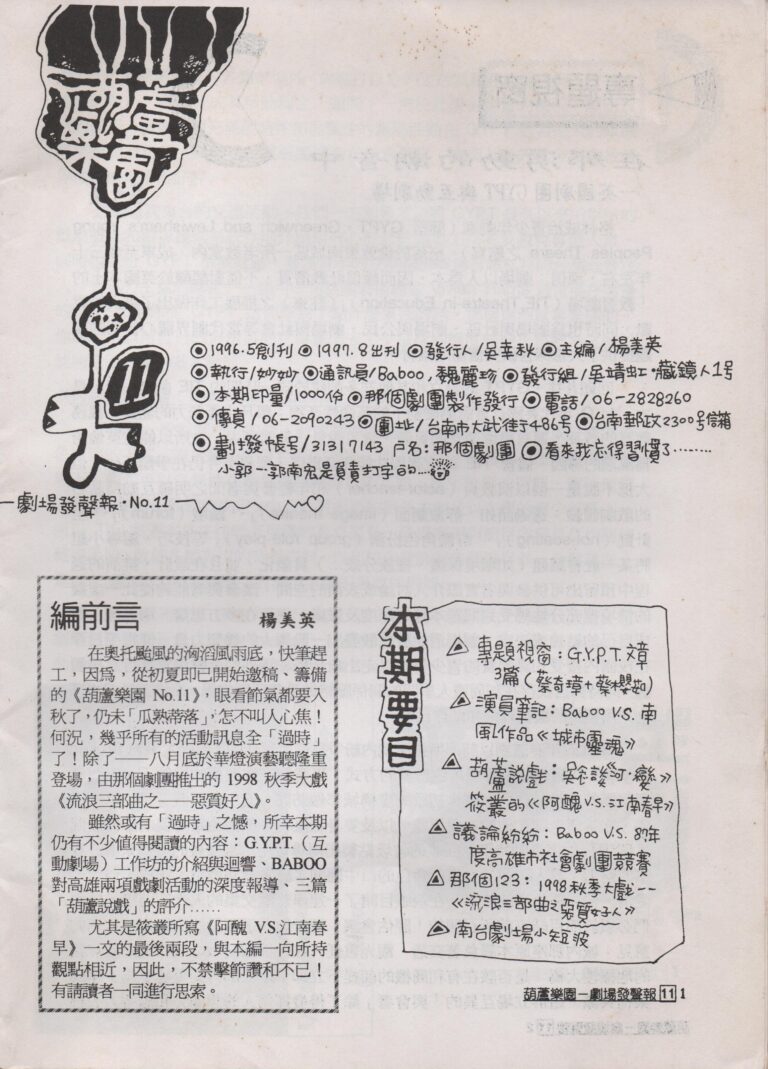 葫蘆樂園
11
◉1996.5創刊 ◉1997.8出刊 ◉發行人/吳幸秋 ◉主編/楊美英
◉執行/妙妙 ◉通訊員/Baboo,魏麗珍 ◉發行組/吳靖虹·藏鏡人1号
◉本期印量/1000份 ◉那個劇團製作發行 ◉電話/06-2828260
◉傳真/06-2090243 ◉團址/台南市大武街486号 ◉台南郵政2300号信箱
◉劃撥帳号/31317143 戶名:那個劇團 ◉看來我忘得習慣了……..
小郭—郭南宏是負責打字的……
劇場發聲報·No.11
編前言 楊美英
在奧托颱風的洶滔風雨底,快筆趕
工,因為,從初夏即已開始邀稿、籌備
的《葫蘆樂園 No.11》,眼看節氣都要入
秋了,仍未「瓜熟蒂落」,怎不叫人心焦!
何況,幾乎所有的活動訊息全「過時」
了!除了——八月底於華燈演藝聽隆重
登場,由那個劇團推出的 1998 秋季大戲
《流浪三部曲之——惡質好人》。
雖然或有「過時」之憾,所幸本期
仍有不少值得閱讀的內容:G.Y.P.T.(互
動劇場)工作坊的介紹與迴響、BABOO
對高雄兩項戲劇活動的深度報導、三篇
「葫蘆說戲」的評介……
尤其是筱叢所寫《阿醜 V.S.江南春
早》一文的最後兩段,與本編一向所持
觀點相近,因此,不禁擊節讚和不已!
有請讀者一同進行思索。
本期要目
專題視窗:G.Y.P.T.文章
3篇(蔡奇璋+蔡櫻茹)
演員筆記:Baboo V.S.南
風作品《城市靈魂》
葫蘆說戲:吳念談《河·變》
筱叢的《阿醜V.S.江南春早》
議論紛紛:Baboo V.S. 87年
度高雄市社會劇團競賽
那個123:1998秋季大戲--
《流浪三部曲之惡質好人》
南台劇場小短波
葫蘆樂園—劇場發聲報 11 1